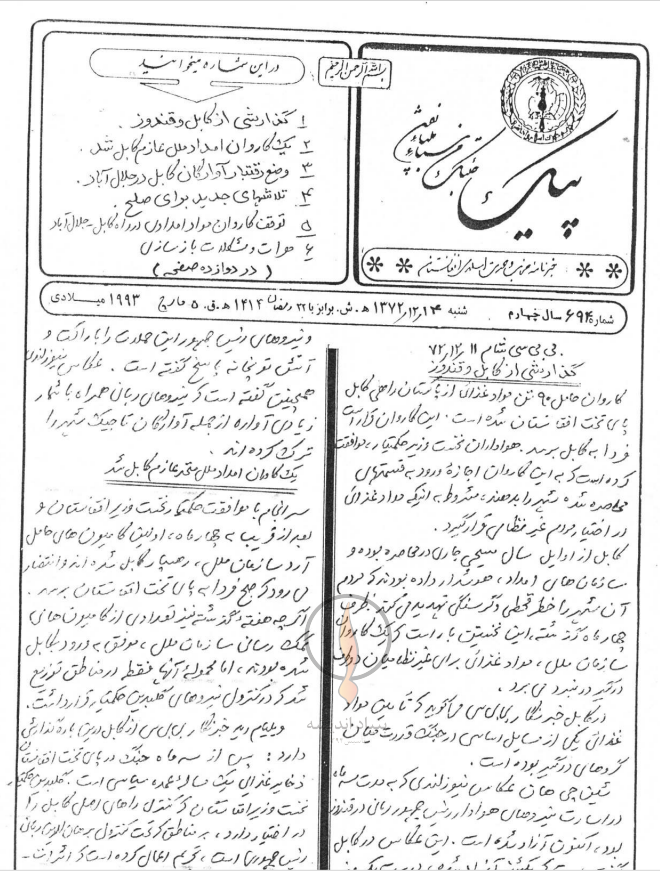 بسم الله الرحمن الرحیم
پیک
خبرنامه حزب وحدت اسلامی افغانستان
در این شماره میخوانید
۱ گذارشی از کابل و قندوز .
۲ یک کاروان امداد ملل عازم کابل شد .
۳ وضع رقتبار آوارگان کابل در جلال آباد .
۴ تلاشهای جدید برای صلح .
۵ توقف کاروان مواد امدادی در راه کابل - جلال آباد
۶ هرات و مشکلات بازسازی
( در دوازده صفحه )
شماره ۶۹۴ سال چهارم شنبه ۱۳۷۲/۱۲/۱۴ ه.ش. برابر با ۲۲ رمضان ۱۴۱۴ ه.ق. ۵ مارچ ۱۹۹۳ میلادی
بی بی سی شام ۷۲/۱۲/۱۱
گذارشی از کابل و قندوز
کاروان حامل ۹۰ تن مواد غذائی از پاکستان راهی کابل
پای تخت افغانستان شده است . این کاروان قرار است
فردا به کابل برسد . هواداران نخست وزیر حکمتیار ، موافقت
کرده است که به این کاروان اجازهٔ ورود به قسمتهای
محاصره شده شهر را بدهند ، مشروط به آنکه مواد غذائی
در اختیار مردم غیر نظامی قرار گیرد .
کابل از اوایل سال مسیحی جاری در محاصره بوده و
سازمان های امداد ، هوشدار داده بودند که مردم
آن شهر را خطر قحطی و گرسنگی تهدید می کند . ظرف
چهار ماه گذشته ، این نخستین بار است که یک کاروان
سازمان ملل ، مواد غذائی برای غیر نظامیان
درگیر در نبرد می برد .
در کابل خبرنگار بی بی سی میگوید که تأمین مواد
غذائی یکی از مسایل اساسی در جنگ قدرت میان
گروهای درگیر بوده است .
هان عکاس نیوزلندی که به مدت سه ماه
در اسارت نیروهای هوادار رئیس جمهور ربانی در قندوز
بود ، اکنون آزاد شده است . این عکاس در کابل
و نیروهای رئیس جمهور این حملات را با راکت و
آتش توپخانه پاسخ گفته است . عکاس نیوزلندی
همچنین گفته است که نیروهای ربانی همراه با شمار
زیادی آواره از جمله آوارگان تاجیک شهر را
ترک کرده اند .
یک کاروان امداد ملل متحد عازم کابل شد
سرانجام با موافقت حکمتیار نخست وزیر افغانستان و
بعد از قریب به چهار ماه ، اولین کامیون های حامل
آرد سازمان ملل ، رهسپار کابل شده اند و انتظار
می رود که صبح فردا به پای تخت افغانستان برسد .
اگر چه هفته گذشته نیز تعدادی از کامیون های
کمک رسانی سازمان ملل ، موفق به ورود بکابل
شده بودند ، اما محمولهٔ آنها فقط در مناطق توزیع
شد که در کنترول نیروهای گلبدین حکمتیار قرار داشت .
ویلیام رید خبرنگار بی بی سی از کابل درین باره گذارشی
دارد : پس از سه ماه جنگ در پای تخت افغانستان
ذخایر غذائی یک مسألهٔ عمده سیاسی است . گلبدین حکمتیار
نخست وزیر افغانستان که کنترول راهای اصلی کابل را
در اختیار دارد ، بر مناطق تحت کنترول برهان الدین ربانی
رئیس جمهوری است ، تحریم اعمال کرده است که اثرات -